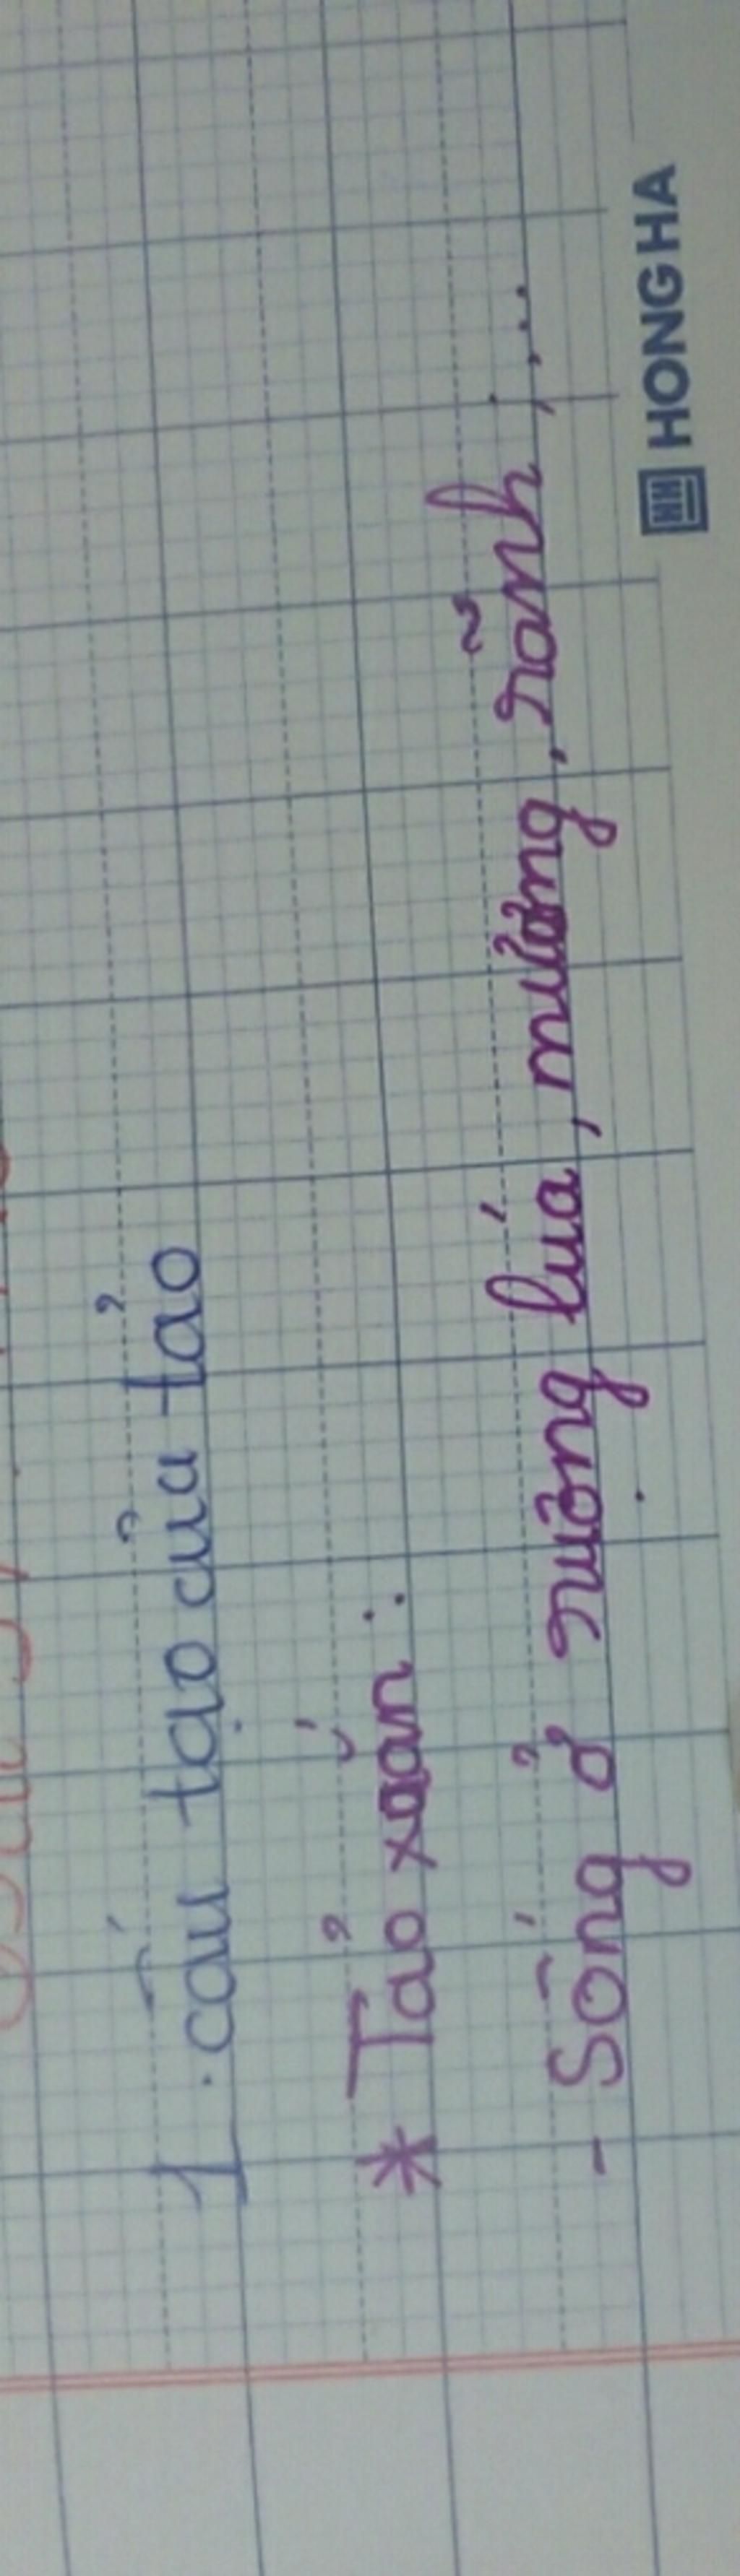 1. cấu tạo của tảo
* Tảo xoắn :
- Sống ở ruộng lúa, mương, rãnh, ...
HONG HA